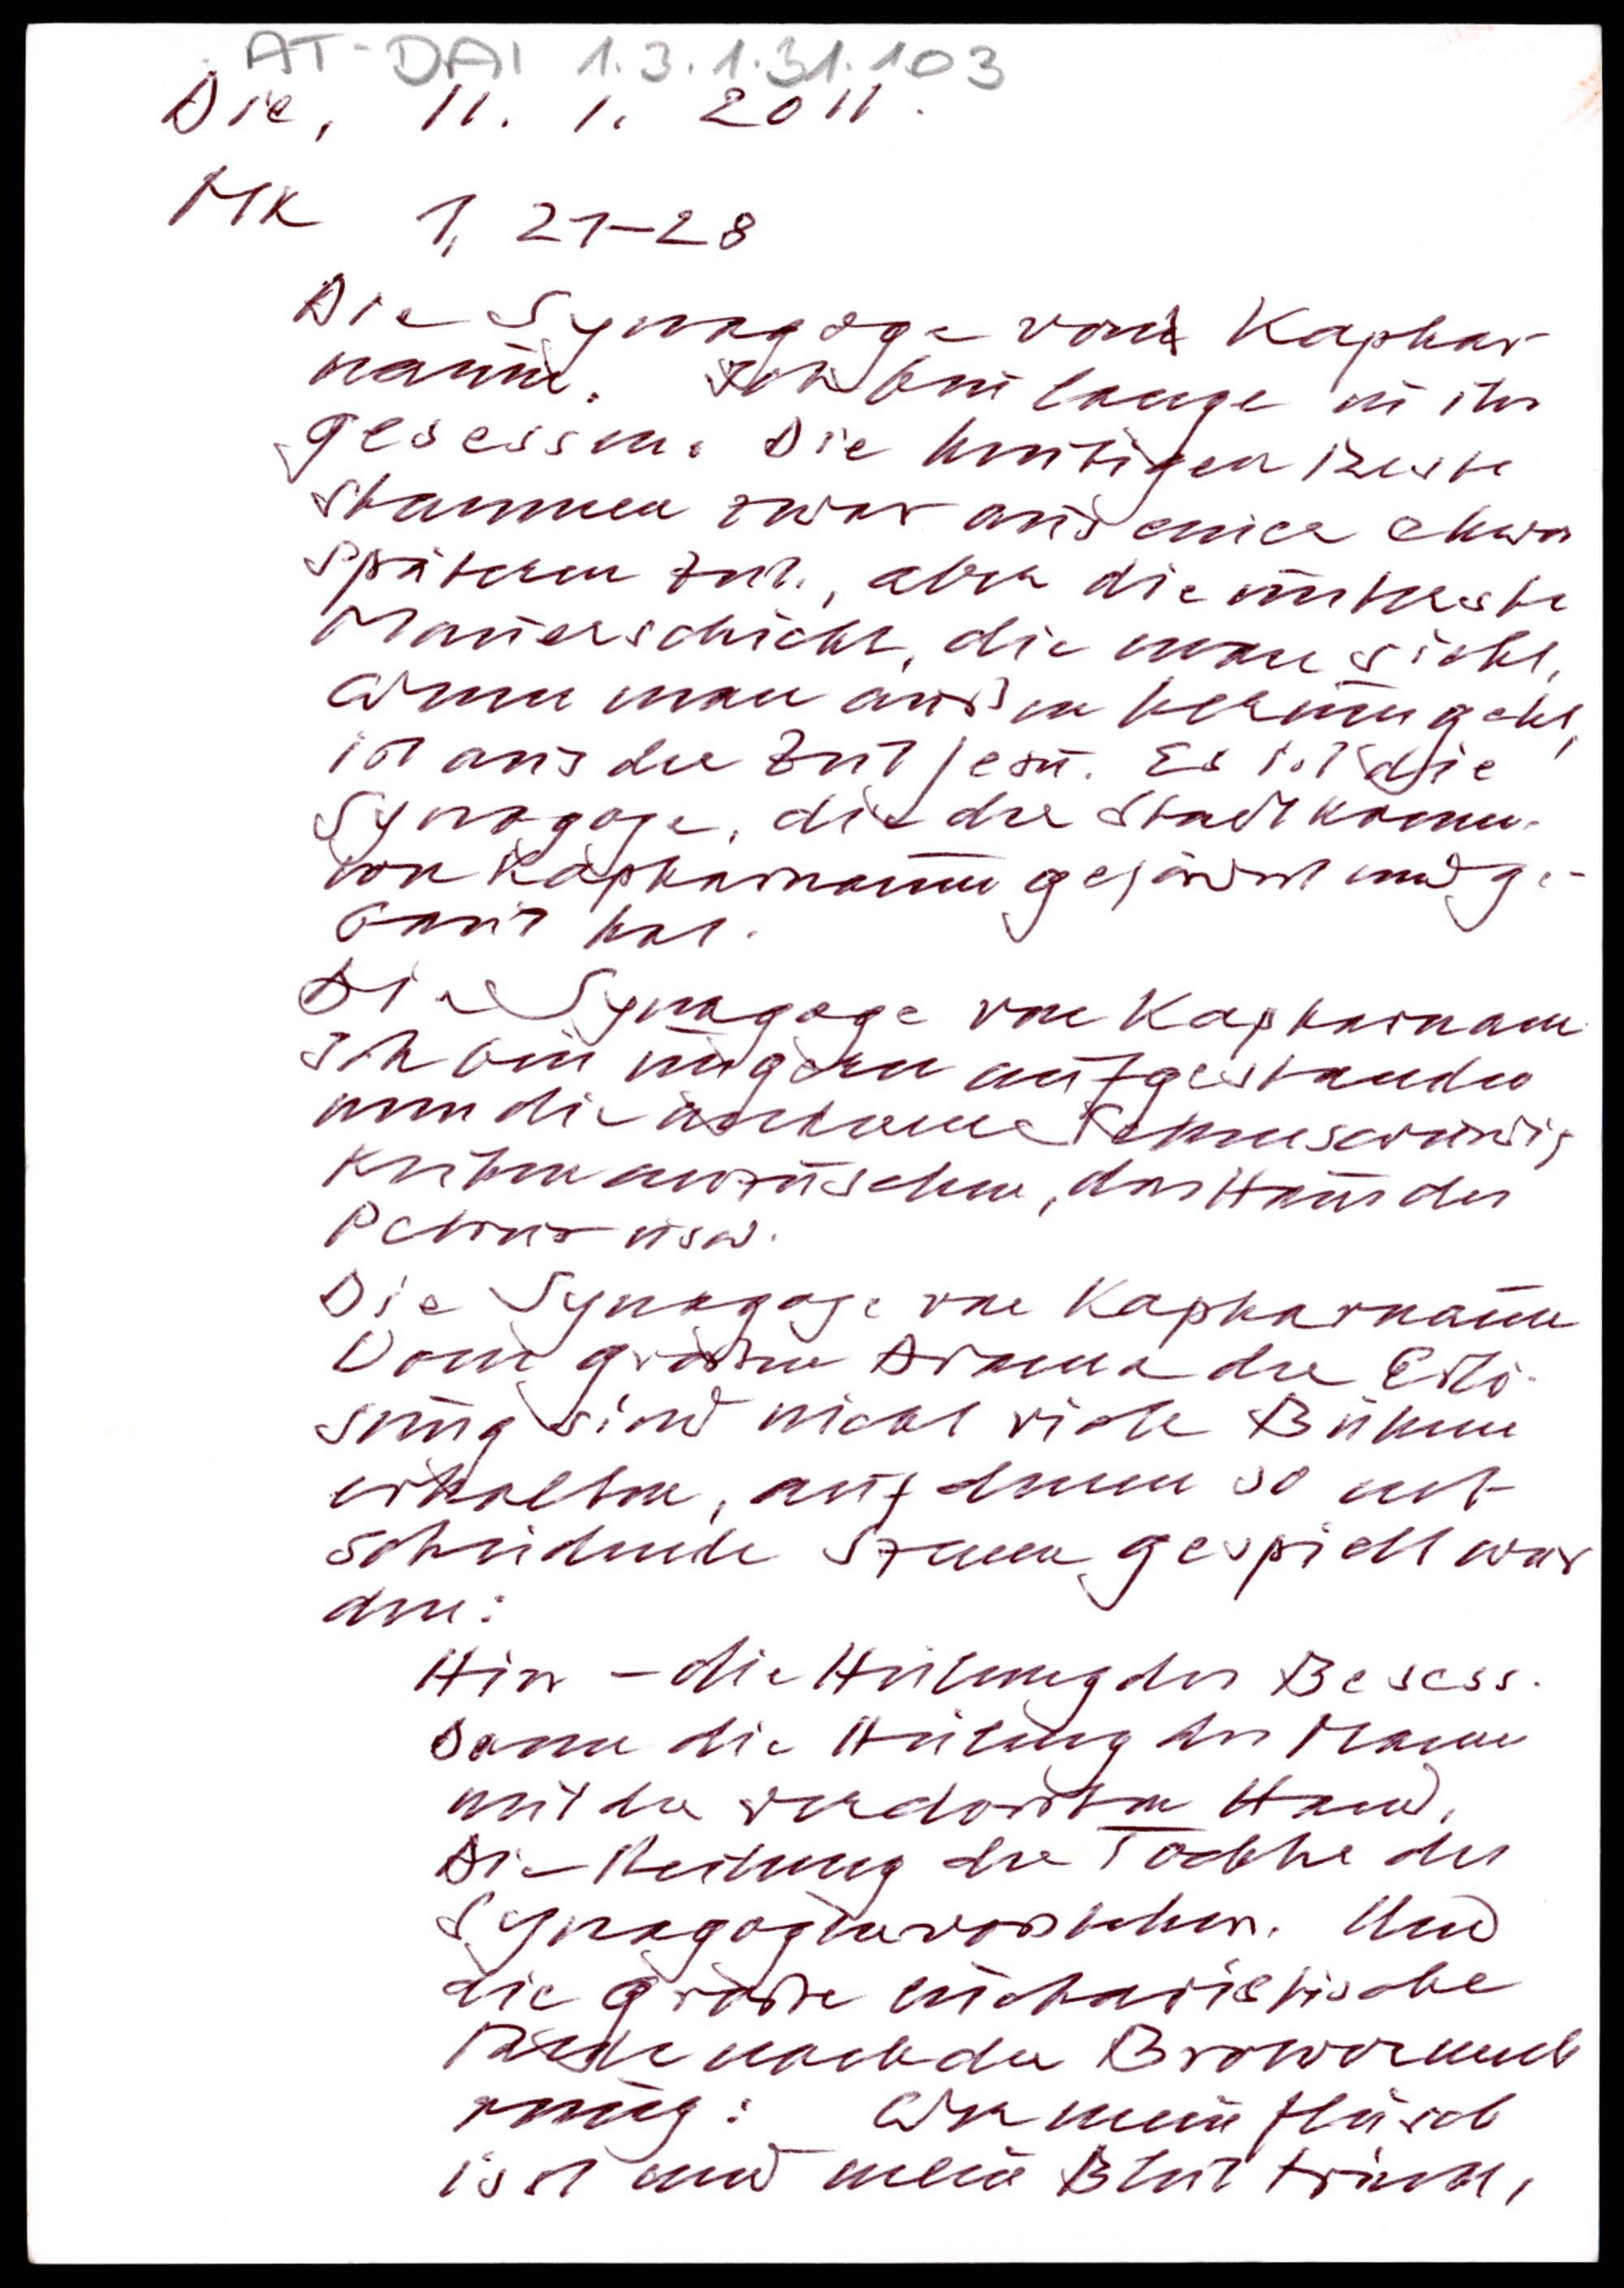 AT-DAI 1.3.1.31.103
Die, 11. 1. 2011.
MK 1, 21-28
Die Synagoge von Kaphar-
naum. Ich bin lange in ihr
gesessen. Die heutigen Reste
stammen zwar aus einer etwas
späteren Zeit, aber die unterste
Mauerschicht, die man sieht,
wenn man außen herumgeht,
ist aus der Zeit Jesu. Es ist die
Synagoge, die der Stadtkomm.
von Kapharnaum gefördert und ge-
baut hat.
Die Synagoge von Kapharnaum
Ich bin ungern aufgestanden
um die anderen Sehenswürdig
keiten anzusehen, das Haus des
Petrus usw.
Die Synagoge von Kapharnaum
Vom großen Drama der Erlö-
sung sind nicht viele Bühnen
erhalten, auf denen so ent-
scheidende Szenen gespielt wur
den:
Hier - die Heilung des Besess.
Dann die Heilung des Mannes
mit der verdorrten Hand,
Die Heilung der Tochter des
Synagogenvorstehers. Und
die große eucharistische
Rede nach der Brotvermeh
rung: Wer mein Fleisch
isst und mein Blut trinkt,